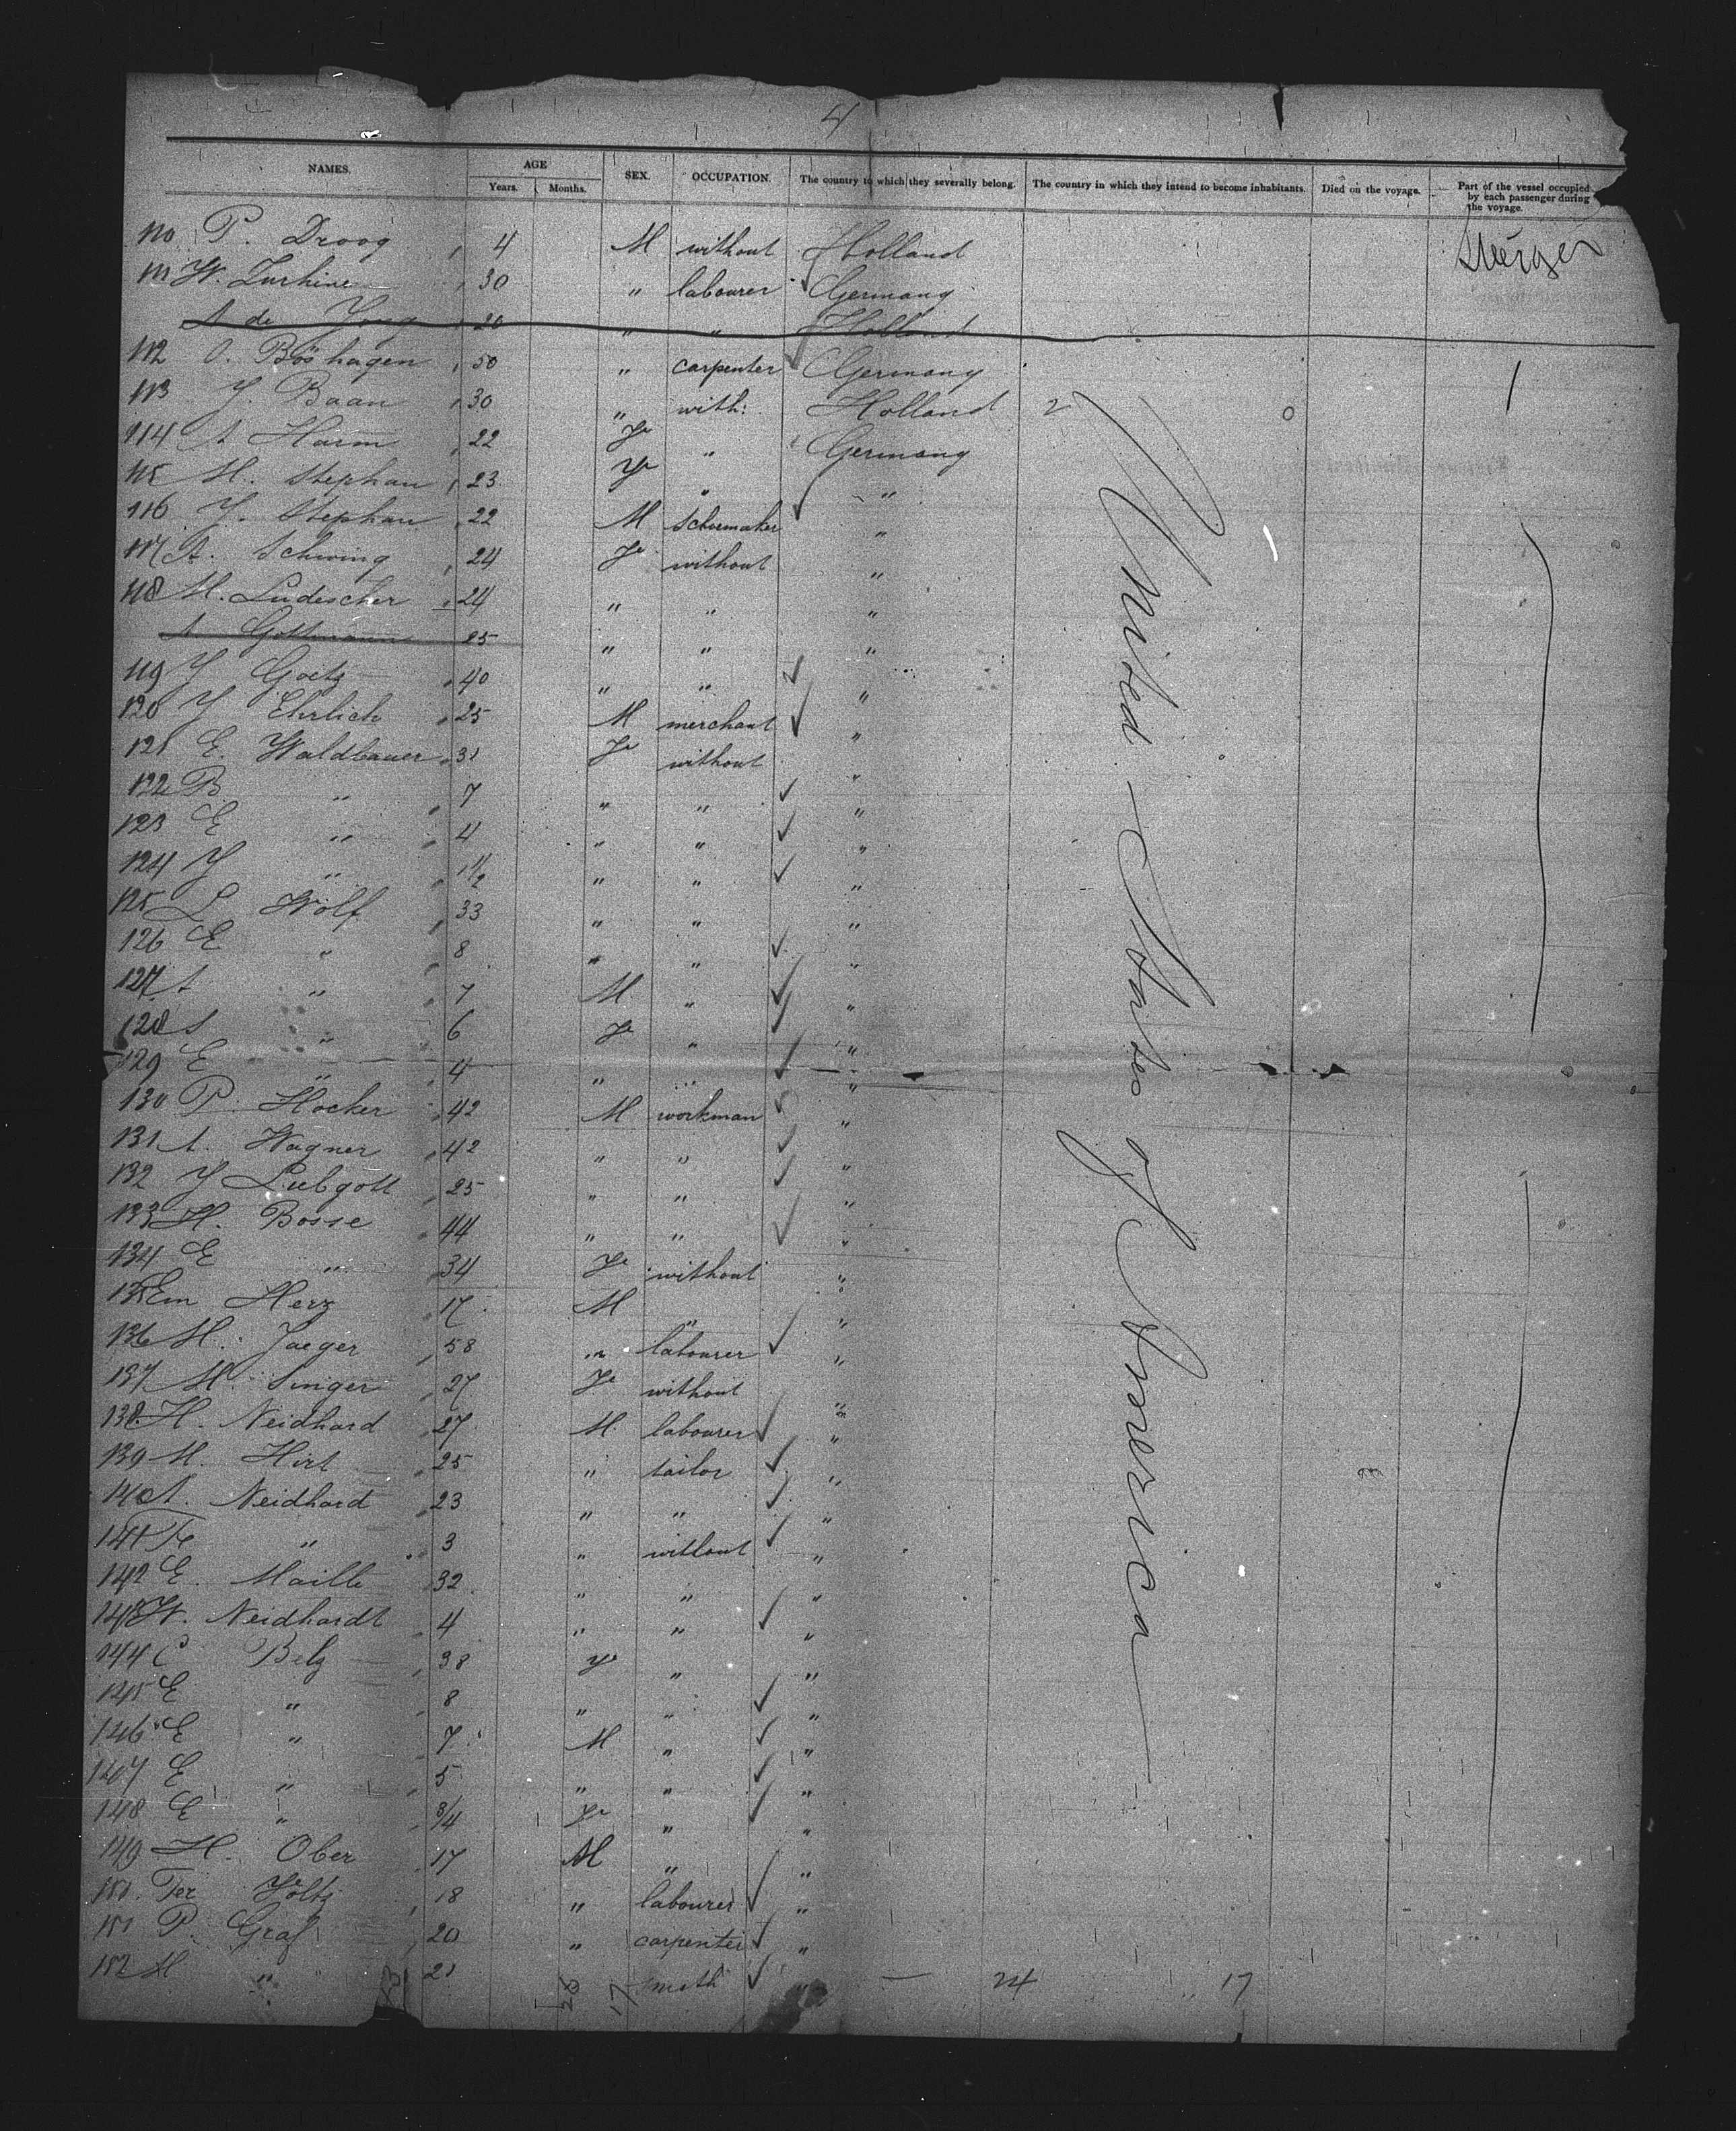 4
NAMES. AGE SEX. OCCUPATION. The country to which they severally belong. The country in which they intend to become inhabitants. Died on the voyage. Part of the vessel occupied by each passenger during the voyage.
Years. Months.
110 P. Droog 4 M without Holland
111 W. 30 " labourer Germany
A de Jong 20 " " Holland
112 O. Böshagen 50 " carpenter Germany
113 J. Baan 30 " with: Holland 2 0
114 A Harm 22 Fe " Germany
115 M. Stephan 23 Fe " "
116 J. Stephan 22 M Schumaker "
117 A. Schwing 24 Fe without "
118 M. Ludescher 24 " " "
A Gottmann 25 " " "
119 J Goetz 40 " " "
120 J Ehrlich 25 M merchant "
121 E. Waldbauer 31 Fe without "
122 B " 7 " " "
123 E " 4 " " "
124 J " 1 1/2 " " "
125 L Wolf 33 " " "
126 E " 8 " " "
127 A " 7 M " "
128 S " 6 Fe " "
129 E " 4 " " "
130 P. Hocker 42 M workman "
131 A. Wagner 42 " " "
132 J Liebgott 25 " " "
133 H. Bosse 44 " " "
134 E " 34 Fe without "
135 Em Herz 17 M " "
136 M. Jaeger 58 " labourer "
137 M. Singer 27 Fe without "
138 H. Neidhard 27 M. labourer "
139 M. Hirt 25 " tailor "
140 A. Neidhard 23 " " "
141 Fe " 3 " without "
142 E. Maille 32 " " "
143 W. Neidhardt 4 " " "
144 C Belz 38 Fe " "
145 E " 8 " " "
146 E " 7 M " "
147 E " 5 " " "
148 E " 3/4 Fe " "
149 H. Ober 17 M " "
150. Fer Höltz 18 " labourer "
151 P. Graf 20 " carpenter "
152 M " 21 smith " — 24 17
United States of America